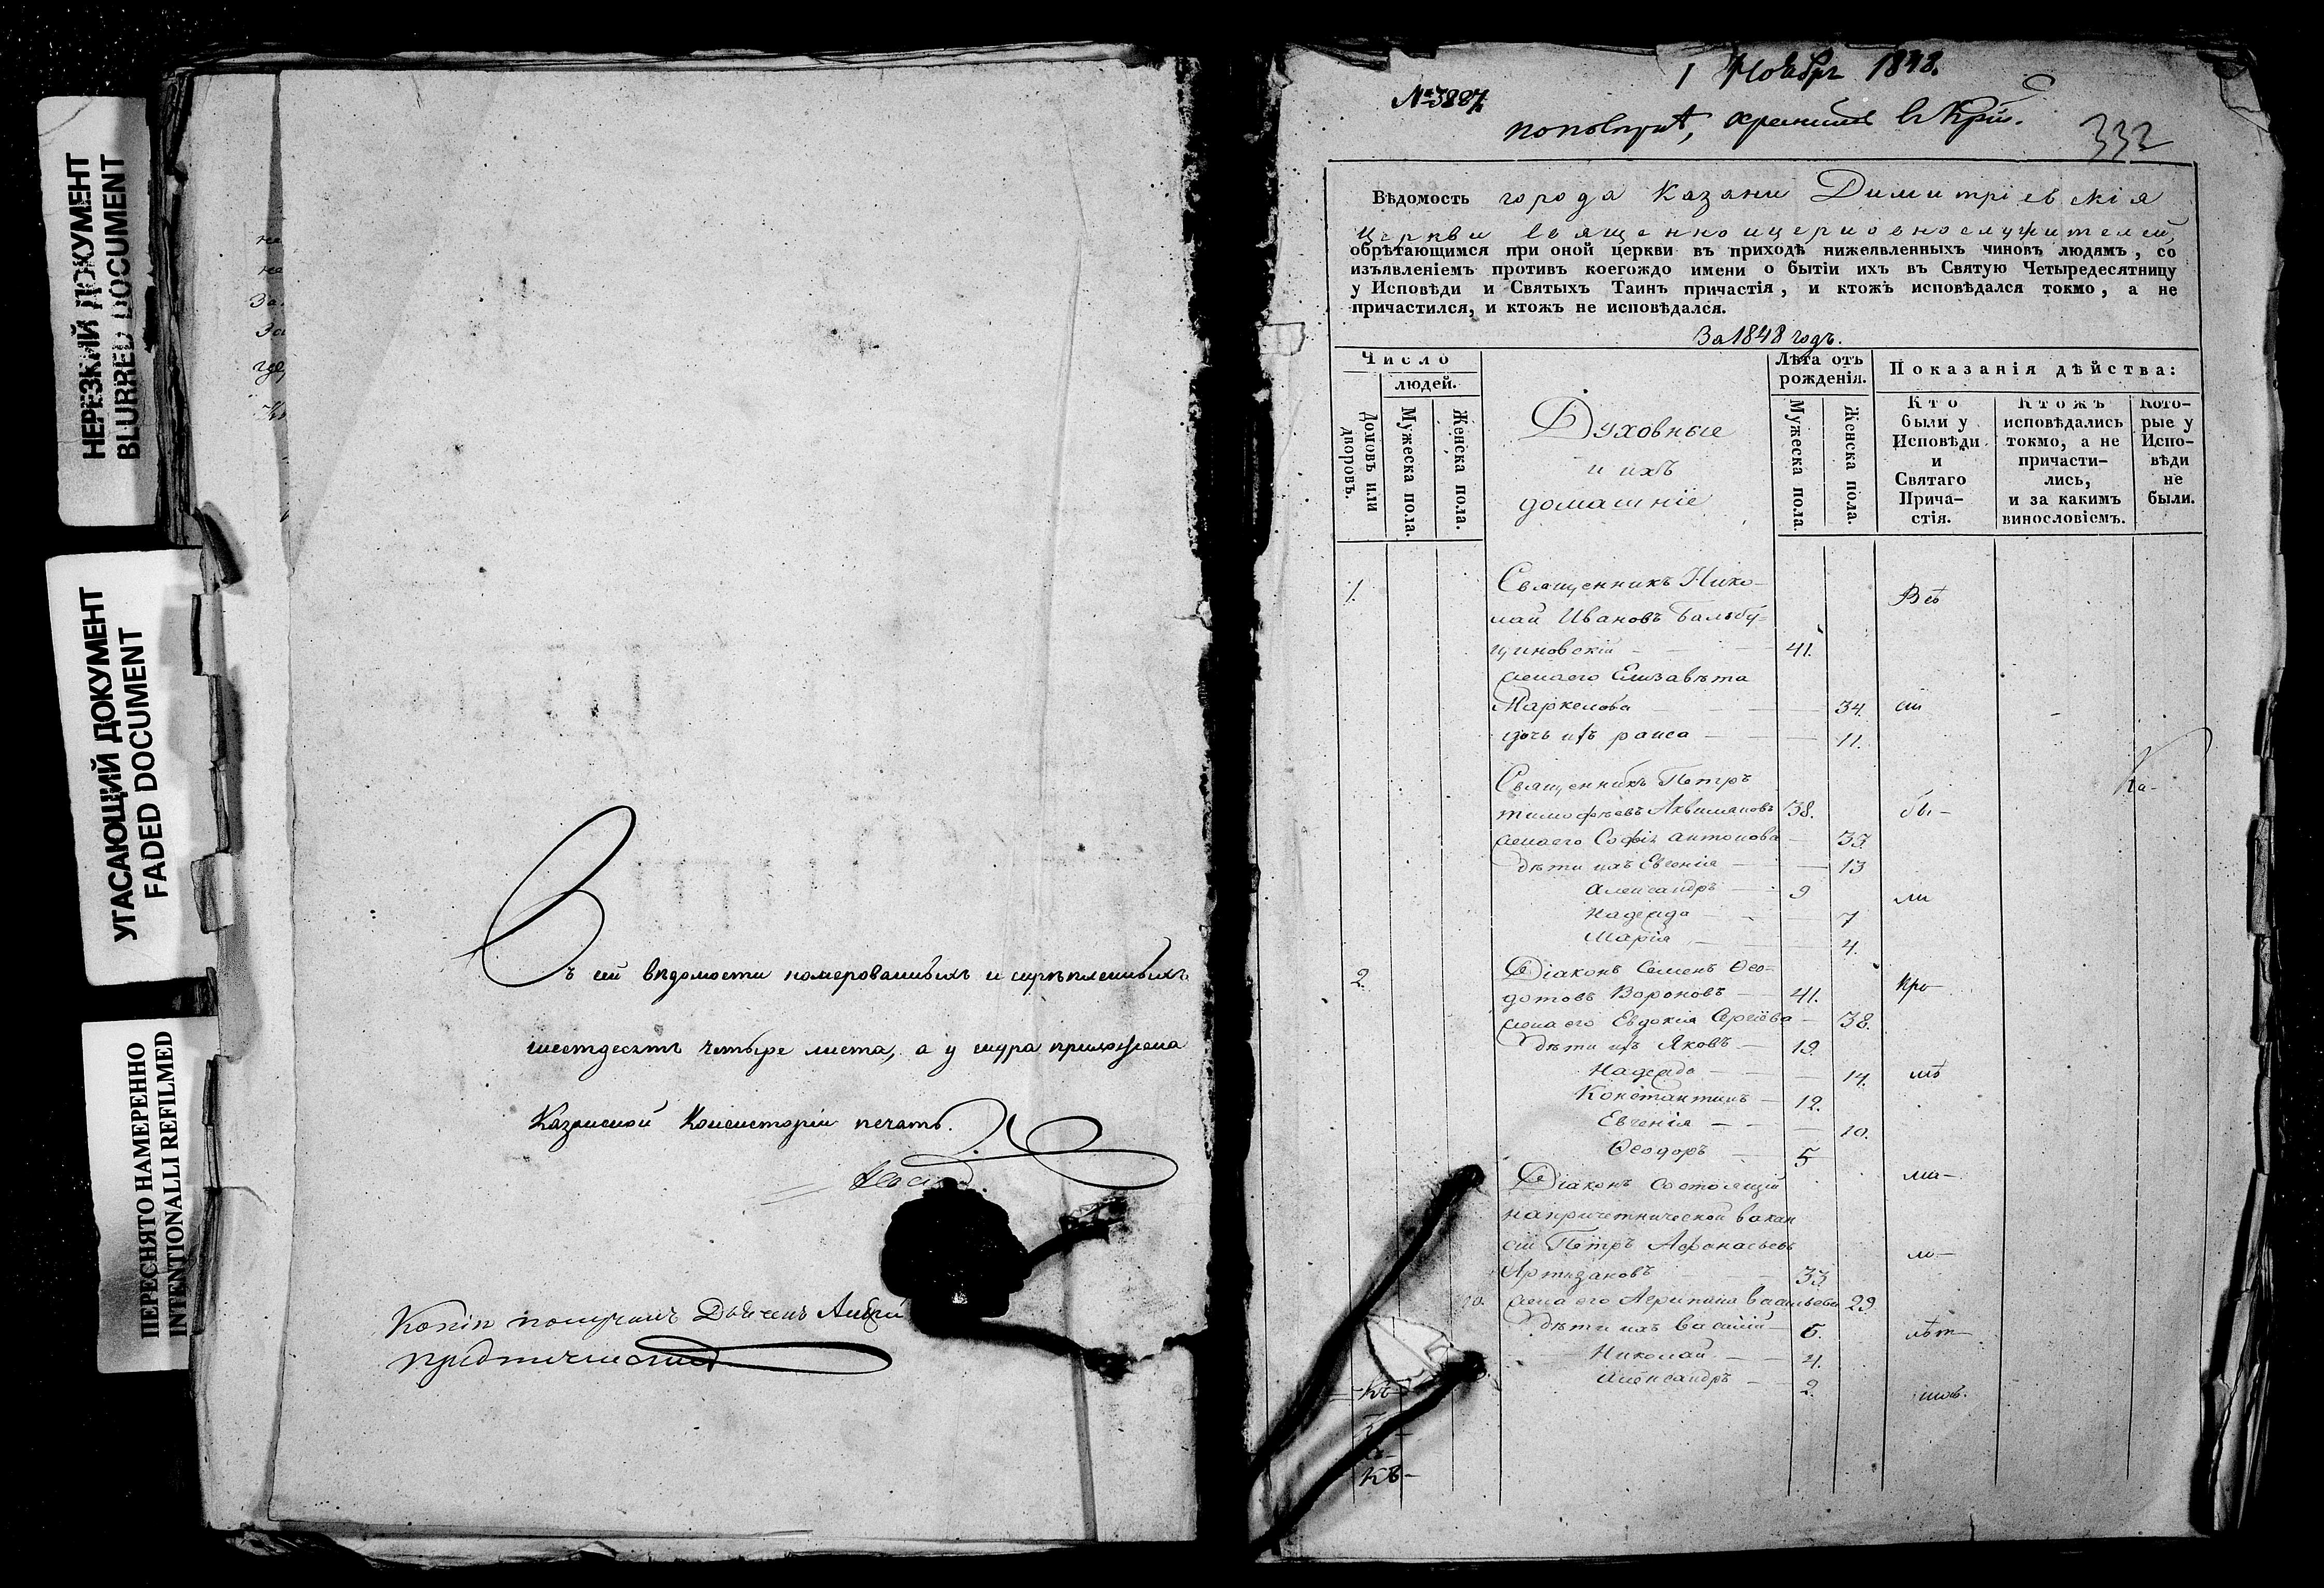 НЕРЕЗКИЙ ДОКУМЕНТ
BLURRED DOCUMENT
УГАСАЮЩИЙ ДОКУМЕНТ
FADED DOCUMENT
ПЕРЕСНЯТО НАМЕРЕННО
INTENTIONALLI REFILMED
Въ сей ведомости номерованныхъ и скрѣпленныхъ
шестдесятъ четыре листа, а у шнура приложена
Казанской Консисторіи печать.
Копію получилъ
1 Ноября 1848.
№ 3887.
332
Вѣдомость города Казани Димитріевскія
Церкви священноицерковнослужителей,
обрѣтающимся при оной церкви въ приходѣ нижеявленныхъ чиновъ людямъ, со
изъявленіемъ противъ коегождо имени о бытіи ихъ въ Святую Четыредесятницу
у Исповѣди и Святыхъ Таинъ причастія, и ктожъ исповѣдался токмо, а не
причастился, и ктожъ не исповѣдался.
За 1848 годъ.
Число
людей.
Домовъ или дворовъ.
Мужеска пола.
Женска пола.
Духовные
и ихъ
домашніе
Лѣта отъ
рожденія.
Мужеска пола.
Женска пола.
Показанія дѣйства:
Кто
были у
Исповѣди
и
Святаго
Прича-
стія.
Ктожъ
исповѣдались
токмо, а не
причасти-
лись,
и за какимъ
винословіемъ.
Кото-
рые у
Испо-
вѣди
не
были.
1. Священникъ Нико- Всѣ
лай Ивановъ Бальбу-
циновскій 41.
жена его Елизавѣта
Маркелова 34. сіи
дочь ихъ раиса 11.
Священникъ Петръ
тимофѣевъ Аквиляновъ 38. бы-
жена его Софія антонова 33.
дѣти ихъ Евгенія 13
Александръ 9 ли
Надежда 7
Марія 4.
2. Діаконъ Семенъ Ѳео- кро-
дотовъ Вороновъ 41.
жена его Евдокія Сергіева 38.
дѣти ихъ Яковъ 19.
Надежда 14. мѣ
Константинъ 12.
Евгенія 10.
Ѳеодоръ 5
Діаконъ Состоящій ма-
напричетнической вакан
сіи Петръ Афонасьевъ ло-
Артизановъ 33
жена его Агрипина васильева 29
дѣти ихъ василій 6. лѣт-
Николай 4.
Александръ 2. нихъ.